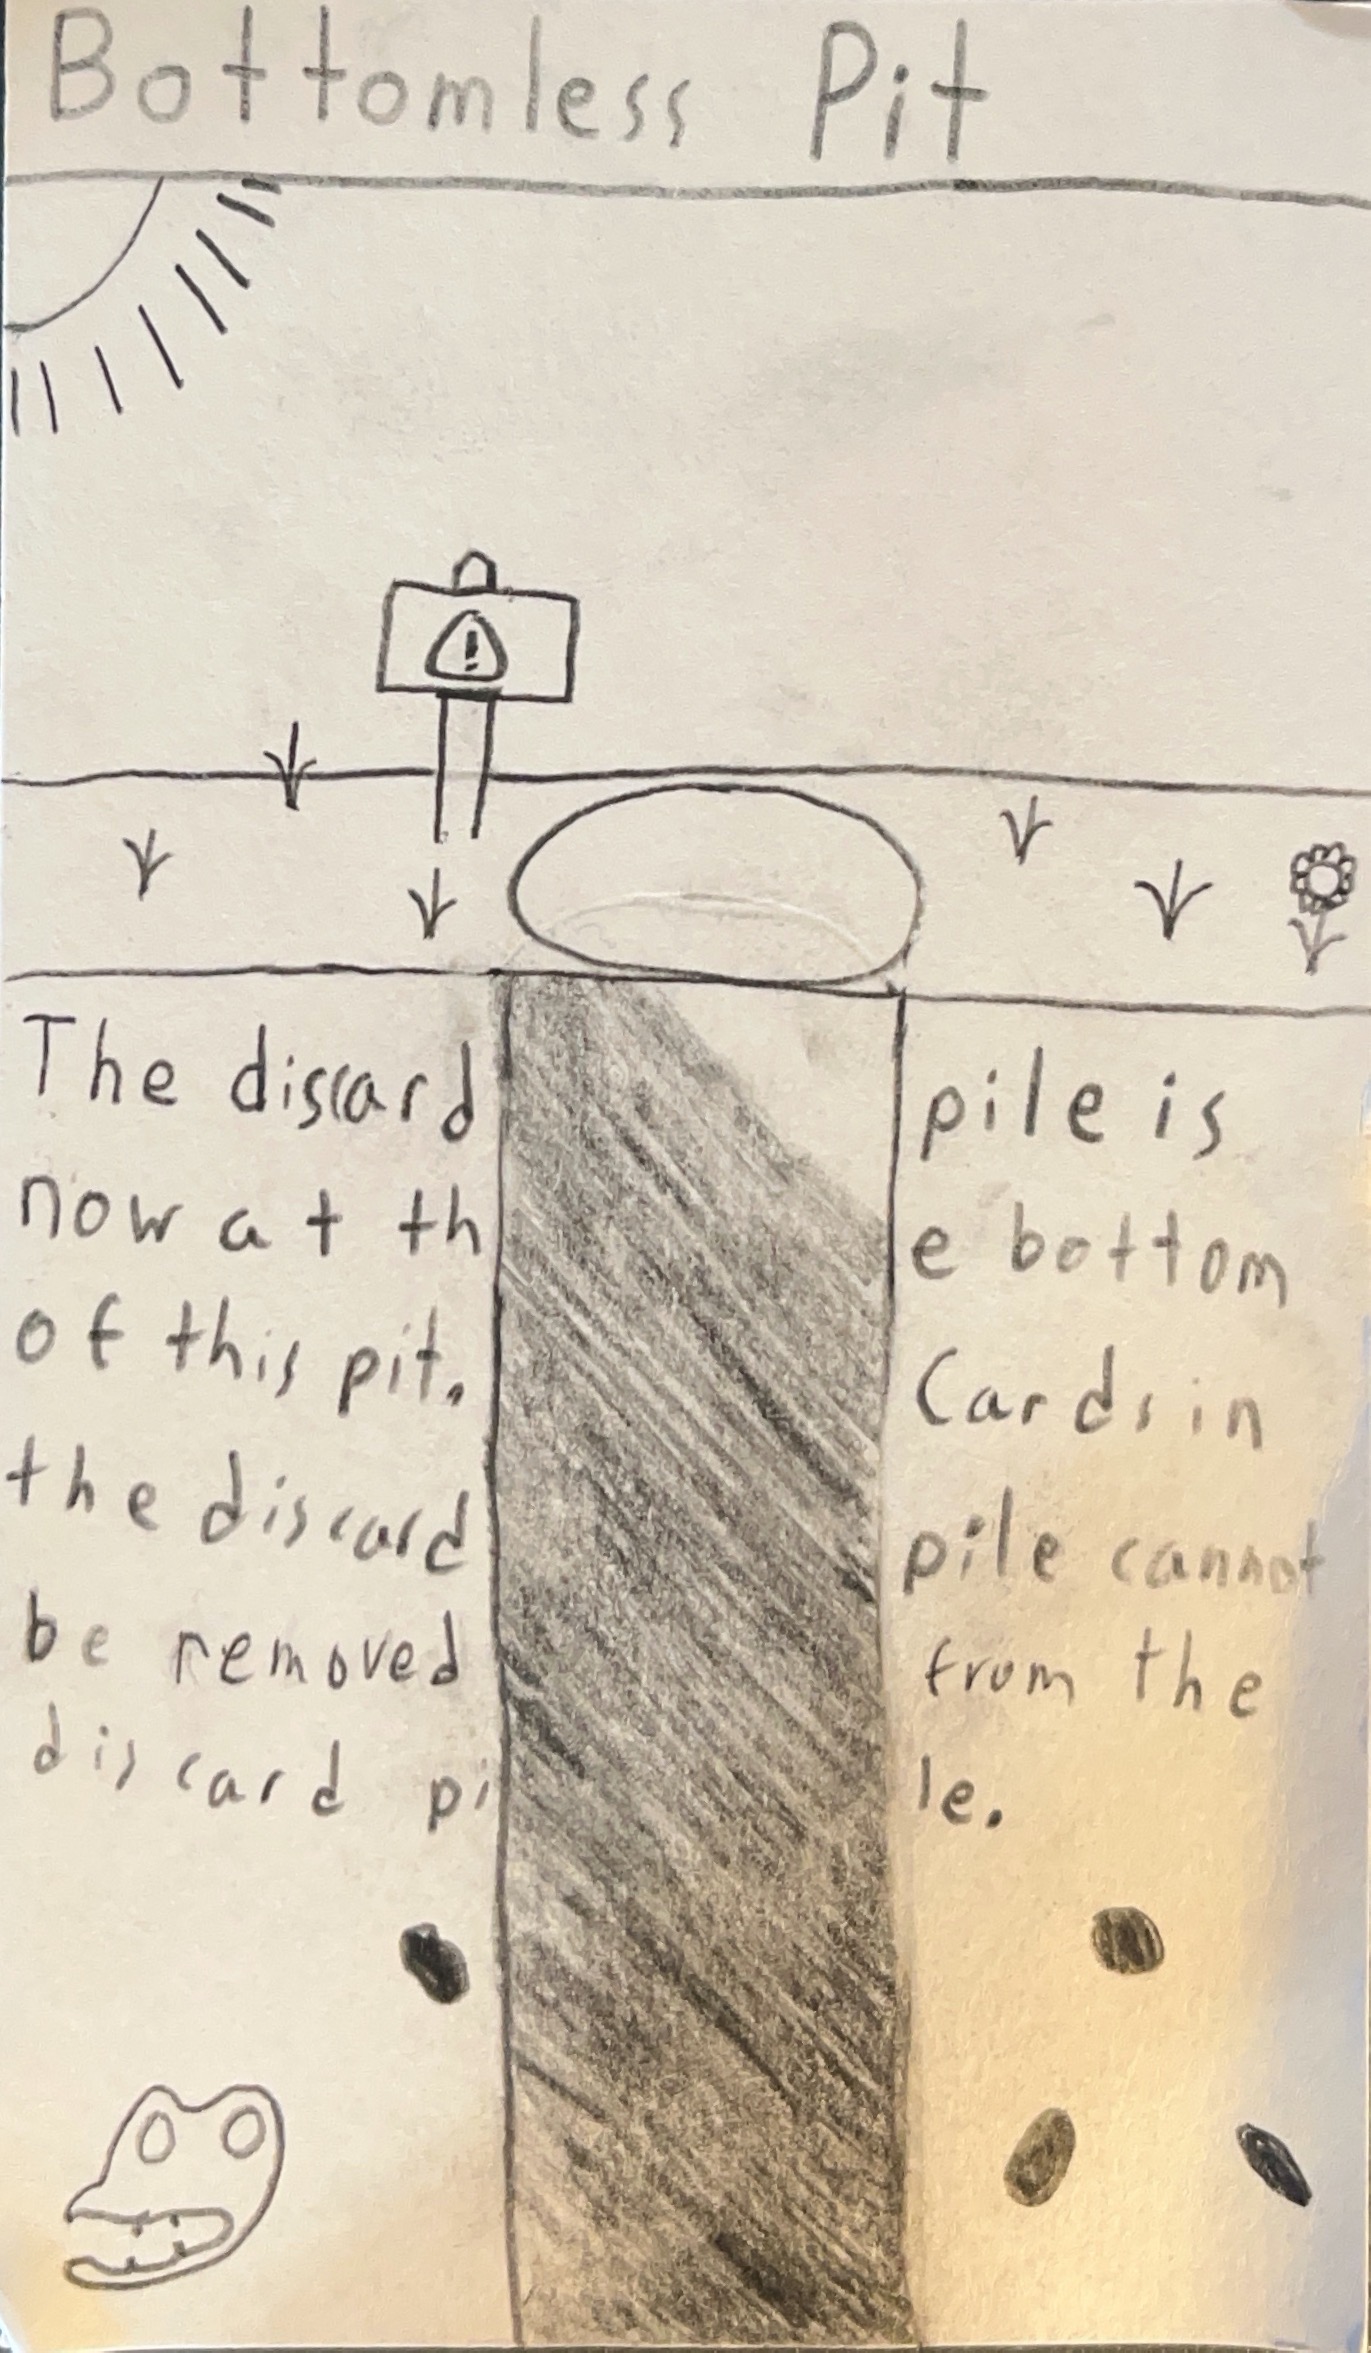 Bottomless Pit
!
The discard pile is
now at the bottom
of this pit. Cards in
the discard pile cannot
be removed from the
discard pile.